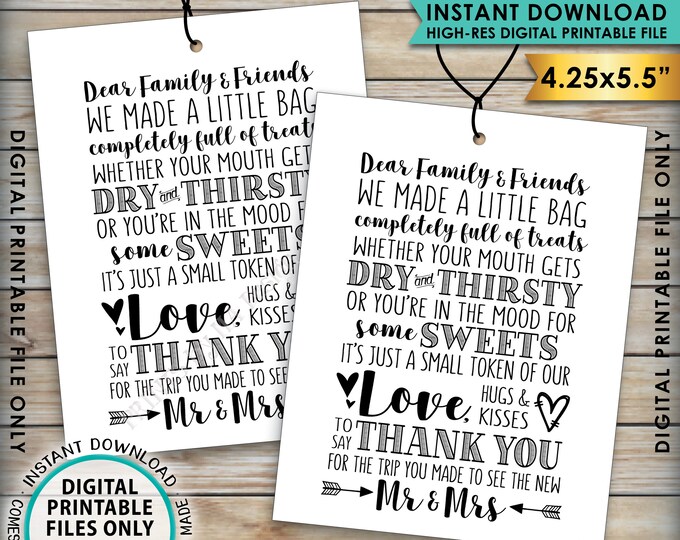 INSTANT DOWNLOAD
HIGH-RES DIGITAL PRINTABLE FILE
4.25x5.5”
DIGITAL PRINTABLE FILE ONLY
Dear Family & Friends
WE MADE A LITTLE BAG
completely full of treats
WHETHER YOUR MOUTH GETS
DRY and THIRSTY
OR YOU'RE IN THE MOOD FOR
some SWEETS
IT'S JUST A SMALL TOKEN OF
Love, HUGS & KISSES
TO SAY THANK YOU
FOR THE TRIP YOU MADE TO SEE
Mr & Mrs
Dear Family & Friends
WE MADE A LITTLE BAG
completely full of treats
WHETHER YOUR MOUTH GETS
DRY and THIRSTY
OR YOU'RE IN THE MOOD FOR
some SWEETS
IT'S JUST A SMALL TOKEN OF OUR
Love, HUGS & KISSES
TO SAY THANK YOU
FOR THE TRIP YOU MADE TO SEE THE NEW
Mr & Mrs
DIGITAL PRINTABLE FILE ONLY
INSTANT DOWNLOAD
DIGITAL
PRINTABLE
FILES ONLY
COMES
MADE